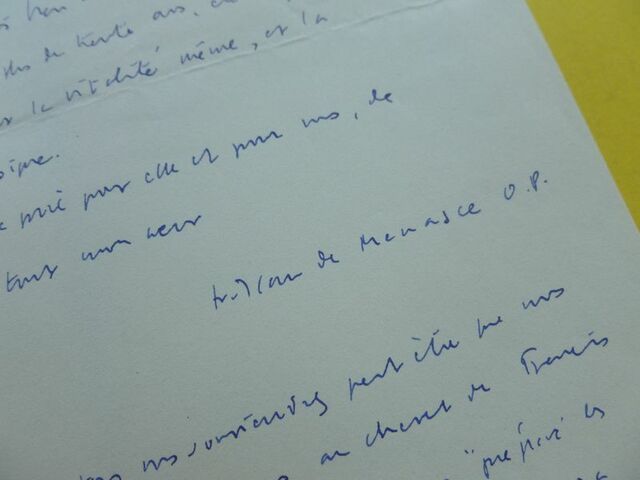 de trente ans,
la vitalité même, et la
prié pour elle et pour vous, de
tout mon coeur
fr. Jean de Menasce O.P.
vous souviendrez peut être que nous
au chevet de Francis
"préparé les